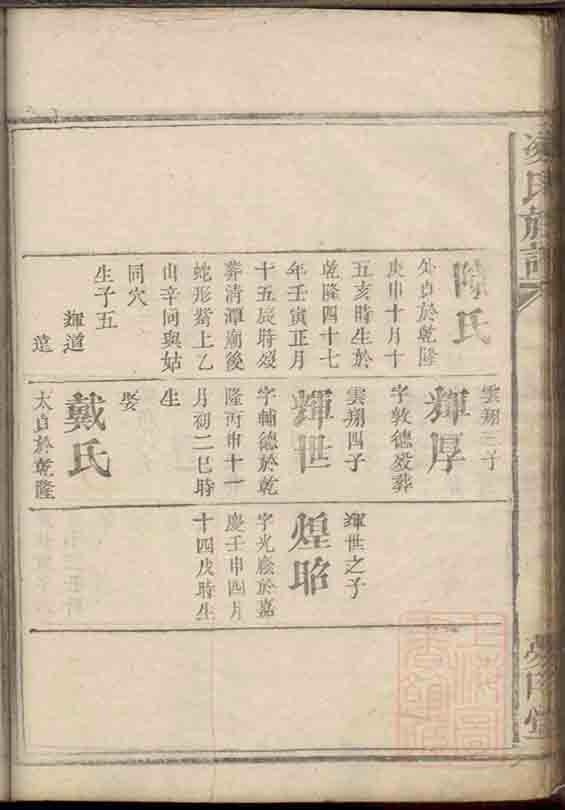 凌氏族譜
陳氏
外貞於乾隆
庚申十月十
五亥時生於
乾隆四十七
年壬寅正月
十五辰時歿
葬清潭廟後
蛇形嘴上乙
山辛向與姑
同穴
生子五
輝道
遠
雲翔三子
輝厚
字敦德歿葬
雲翔四子
輝世
字輔德於乾
隆丙申十一
月初二巳時
生
娶
戴氏
太貞於乾隆
輝世之子
煌昭
字光於嘉
慶壬申四月
十四戌時生
上海圖
書館藏